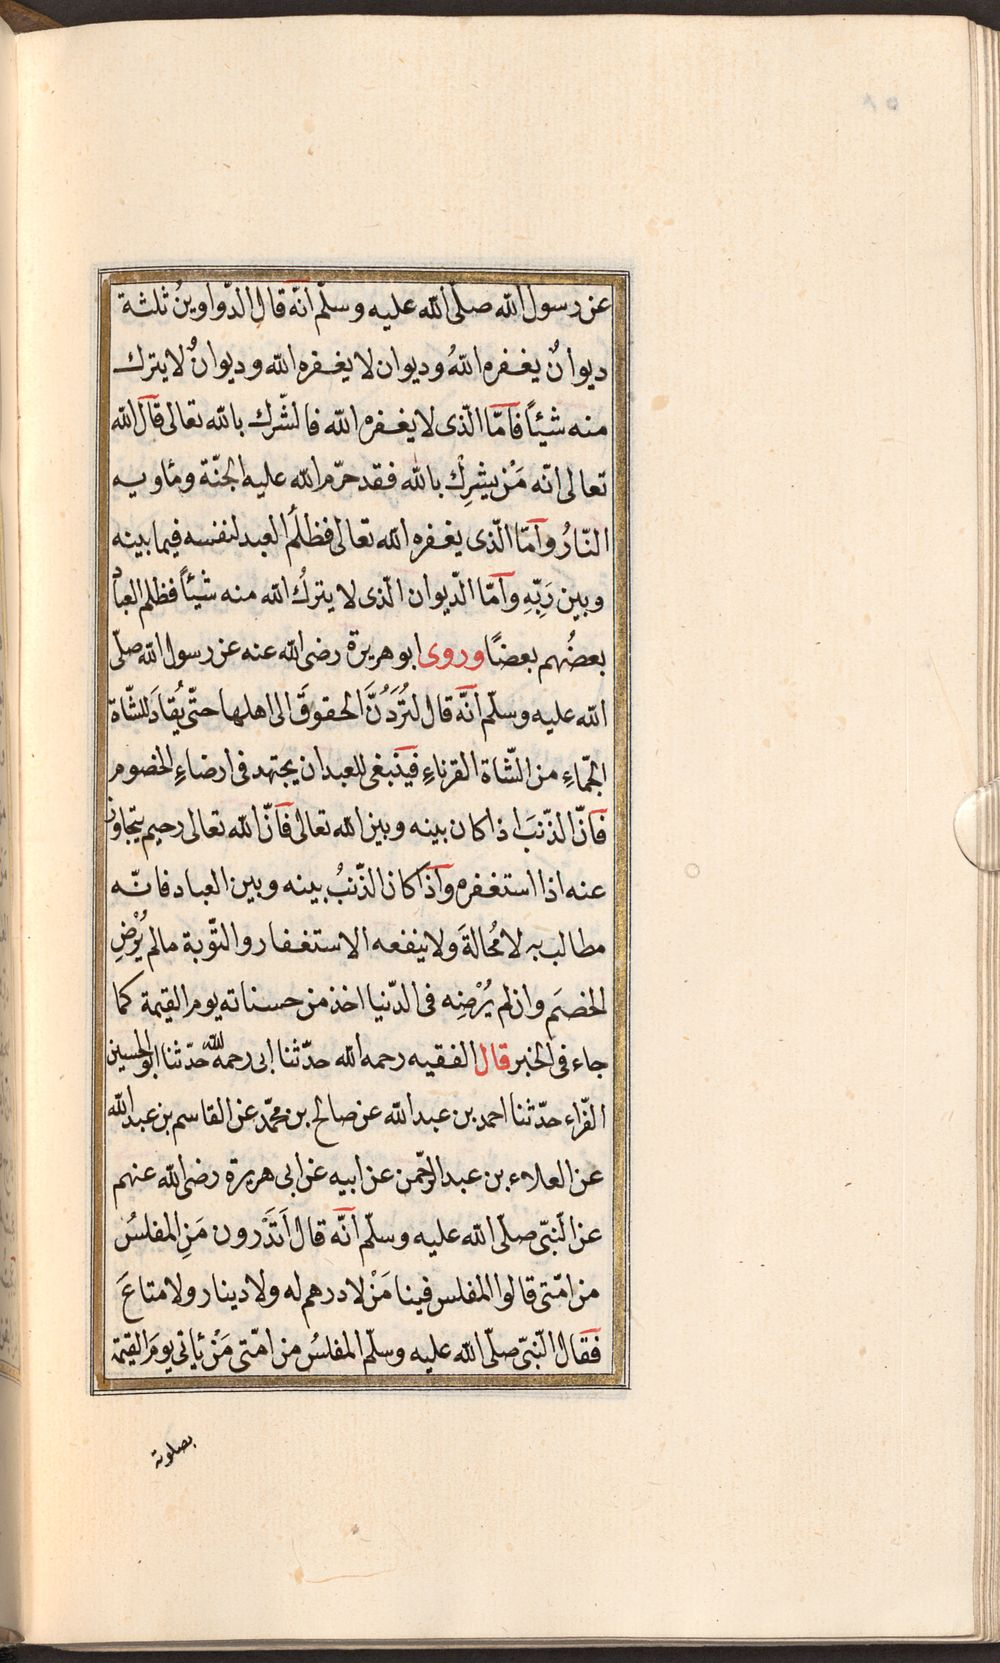 عن رسول الله صلّى الله عليه وسلّم انّه قال الدّواوينُ ثلثة
ديوانٌ يغفره اللهُ وديوان لا يغفره الله وديوانٌ لا يترك
منه شيئًا فامّا الّذى لا يغفره الله فالشّرك بالله تعالى قال الله
تعالى انّه مَنْ يشرِكْ بالله فقد حرّم الله عليه الجنّة ومأويه
النّارُ وامّا الّذى يغفره الله تعالى فظلمُ العبد لنفسه فيما بينه
وبين رَبِّهِ وامّا الدّيوان الّذى لا يتركُ الله منه شيئًا فظلم العباد
بعضُهم بعضًا وروى ابو هريرة رضى الله عنه عن رسول الله صلّى
الله عليه وسلّم انّه قال لتُرَدُّنَّ الحقوقَ الى اهلها حتّى يُقادَ للشّاة
الجمّاءِ من الشّاة القرناءِ فينبغى للعبد ان يجتهد فى ارضاءِ الخصوم
فانّ الذّنبَ اذا كان بينه وبين الله تعالى فانّ الله تعالى رحيم يتجاوز
عنه اذا استغفره واذا كان الذّنبُ بينه وبين العباد فانّه
مطالب به لا مُحالةَ ولا ينفعه الاستغفار والتّوبة مالم يُرْضِ
الخصَم وان لم يُرْضِه فى الدّنيا اخذ من حسناته يوم القيمة كما
جاء فى الخبر قال الفقيه رحمه الله حدّثنا ابى رحمه الله حدّثنا ابو الحسين
الفرّاء حدّثنا احمد بن عبد الله عن صالح بن محمّد عن القاسم بن عبد الله
عن العلاء بن عبد الرّحمن عن ابيه عن ابى هريرة رضى الله عنهم
عن النّبىّ صلّى الله عليه وسلّم انّه قال اَتَدْرون مَنِ المفلسُ
من امّتى قالوا المفلس فينا مَنْ لا درهم له ولا دينار ولا متاعَ
فقال النّبىّ صلّى الله عليه وسلّم المفلسُ من امّتى مَنْ يأتى يومَ القيمة
بصلوة